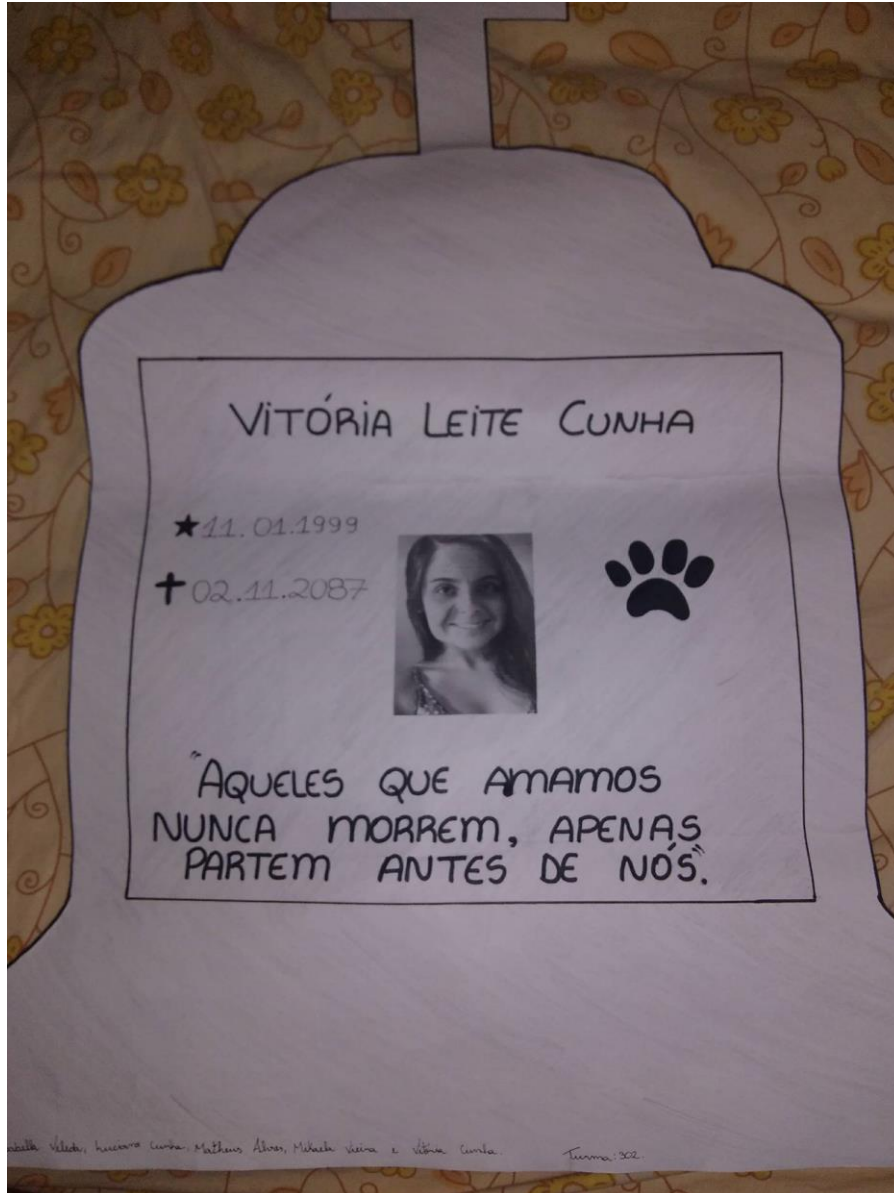 VITÓRIA LEITE CUNHA
★11.01.1999
✝02.11.2087
"AQUELES QUE AMAMOS
NUNCA MORREM, APENAS
PARTEM ANTES DE NÓS".
Cunha, Matheus Alves, Mikaela Vieira e Vitória Cunha. Turma: 302.